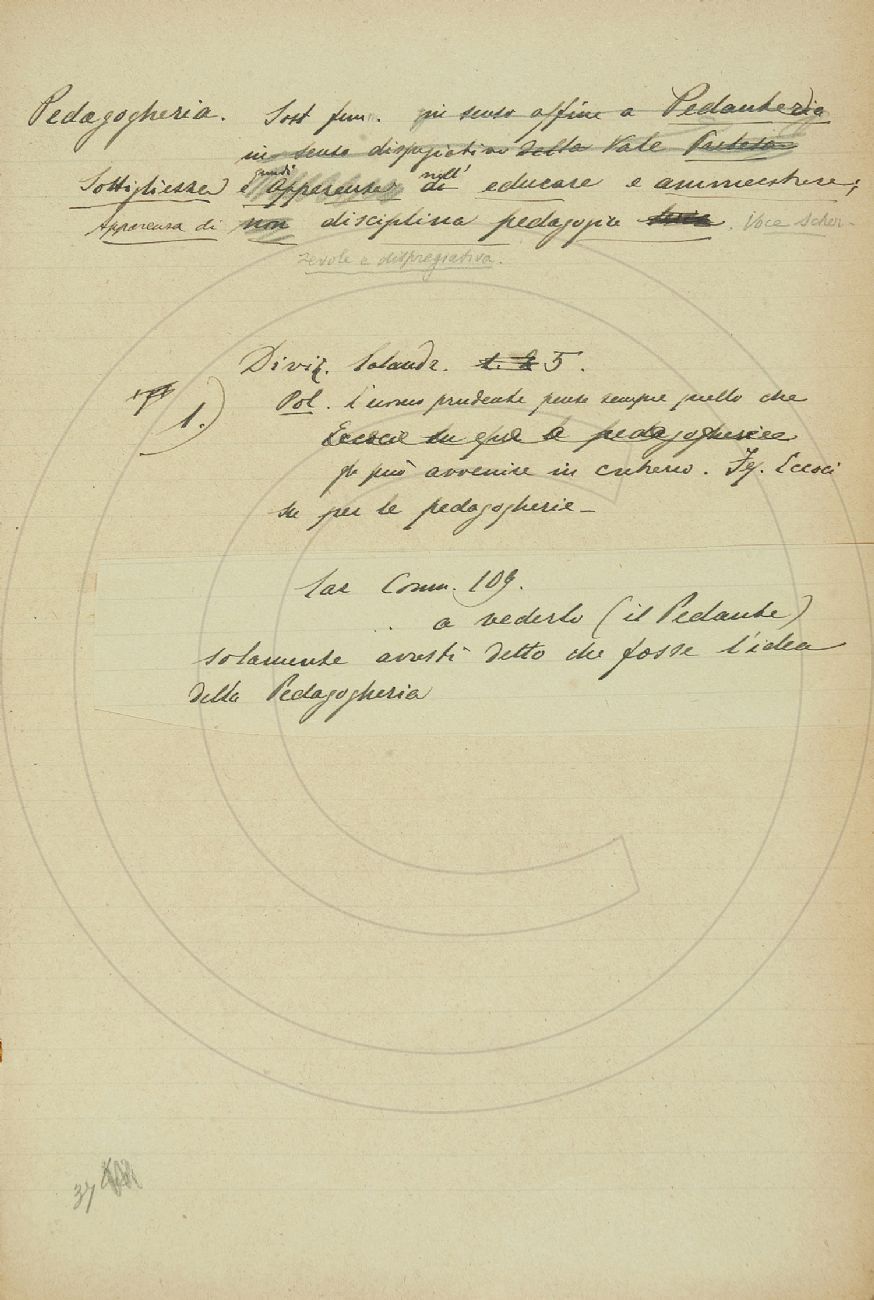 Pedagogheria. Sost fem. in senso affine a Pedanteria
in senso dispregiativo della Vale Pretesa
Sottigliezza e quasi Apparenza nell' di educare e ammaestrare;
Apparenza di non disciplina pedagogia. Voce Scher-
zevole e dispregiativa.
Diviz. Coland. 5.
1.) Pol. L'uomo prudente pensa sempre quello che
Eccoci su le pedagogherie
gli può avvenire in contrario. Fg. Eccoci
su per le pedagogherie –
Las Comm. 109.
. . a vederlo (il Pedante)
solamente avresti detto che fosse l'idea
della Pedagogheria
37